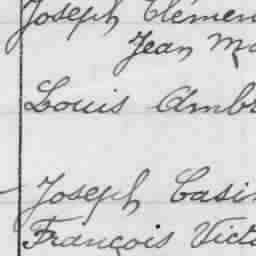 Joseph Clémen
Jean Ma
Louis Ambr
Joseph Casi
François Vict